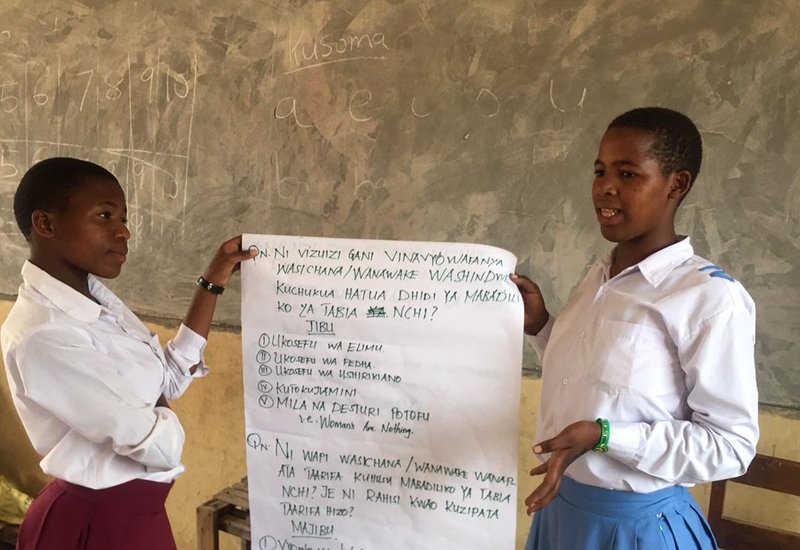 Kusoma
5 6 7 8 9 10
a e i o u
QN. NI VIZUIZI GANI VINAVYOWAFANYA
WASICHANA/WANAWAKE WASHINDWE
KUCHUKUA HATUA DHIDI YA MABADILI
KO YA TABIA NCHI?
JIBU
I UKOSEFU WA ELIMU.
II UKOSEFU WA FEDHA.
III UKOSEFU WA USHIRIKIANO
IV KUTOKUJIAMINI
V MILA NA DESTURI POTOFU
i.e. Womans Are Nothing.
QN. NI WAPI WASICHANA/WANAWAKE WANAP
ATA TAARIFA KUHUSU MABADILIKO YA TABIA
NCHI? JE NI RAHISI KWAO KUZIPATA
TAARIFA HIZO?
MAJIBU